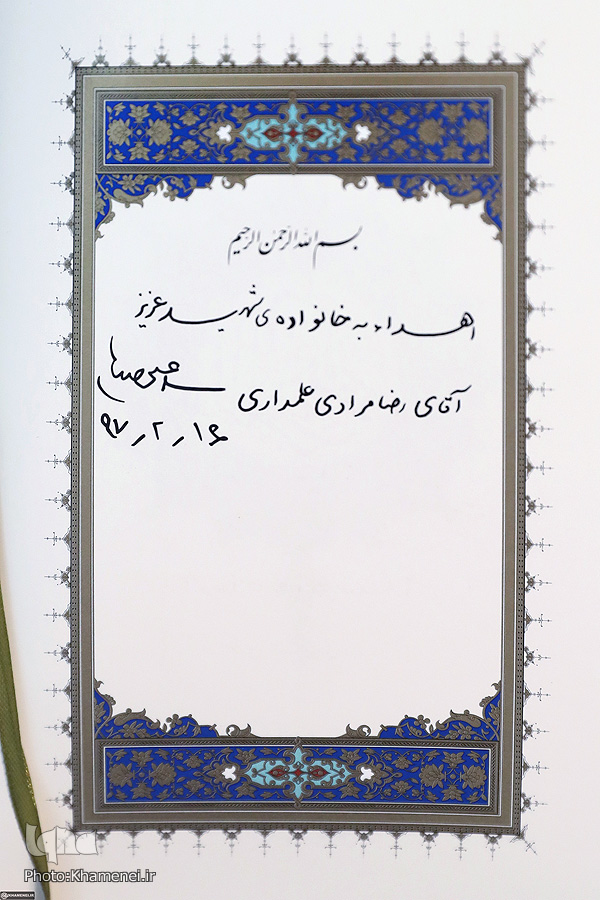 بسم الله الرحمن الرحیم
اهداء به خانواده‌ی شهید عزیز
آقای رضا مرادی علمداری
۹۷٫۲٫۱۶
Photo:Khamenei.ir
KHAMENEI.IR